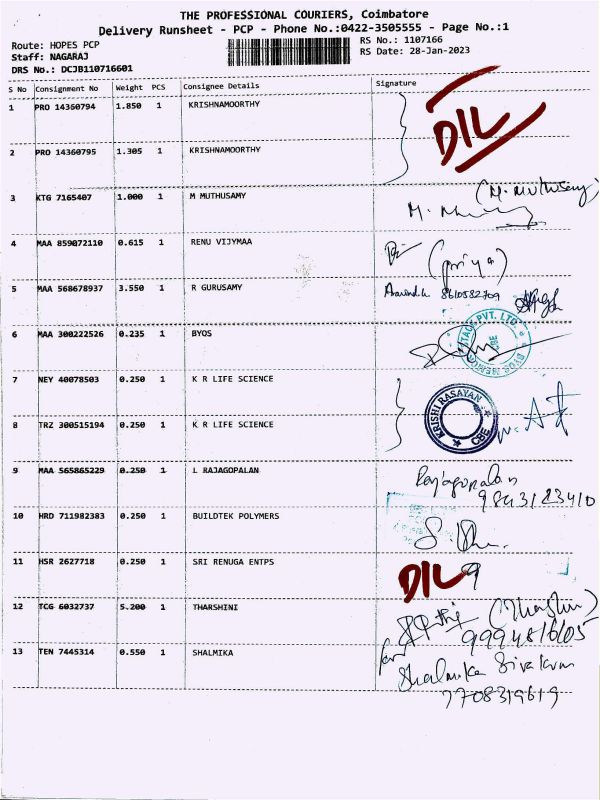 THE PROFESSIONAL COURIERS, Coimbatore
Delivery Runsheet - PCP - Phone No.:0422-3505555 - Page No.:1
Route: HOPES PCP
RS No.: 1107166
Staff: NAGARAJ
RS Date: 28-Jan-2023
DRS No.: DCJB110716601
S No Consignment No Weight PCS Consignee Details Signature
1 PRO 14360794 1.850 1 KRISHNAMOORTHY
DIL
2 PRO 14360795 1.305 1 KRISHNAMOORTHY
3 KTG 7165407 1.000 1 M MUTHUSAMY
(M. Muthusamy)
4 MAA 859072110 0.615 1 RENU VIJYMAA
(Priya)
5 MAA 568678937 3.550 1 R GURUSAMY
8610582709
6 MAA 300222526 0.235 1 BYOS
PVT. LTD. CBE
7 NEY 40078503 0.250 1 K R LIFE SCIENCE
KRISHI RASAYAN CBE
8 TRZ 300515194 0.250 1 K R LIFE SCIENCE
9 MAA 565865229 0.250 1 L RAJAGOPALAN
Rajagopalan
9843123410
10 HRD 711982383 0.250 1 BUILDTEK POLYMERS
11 HSR 2627718 0.250 1 SRI RENUGA ENTPS
DIL
12 TCG 6032737 5.200 1 THARSHINI
13 TEN 7445314 0.550 1 SHALMIKA
for
Shalmika Sivakum
7708319619